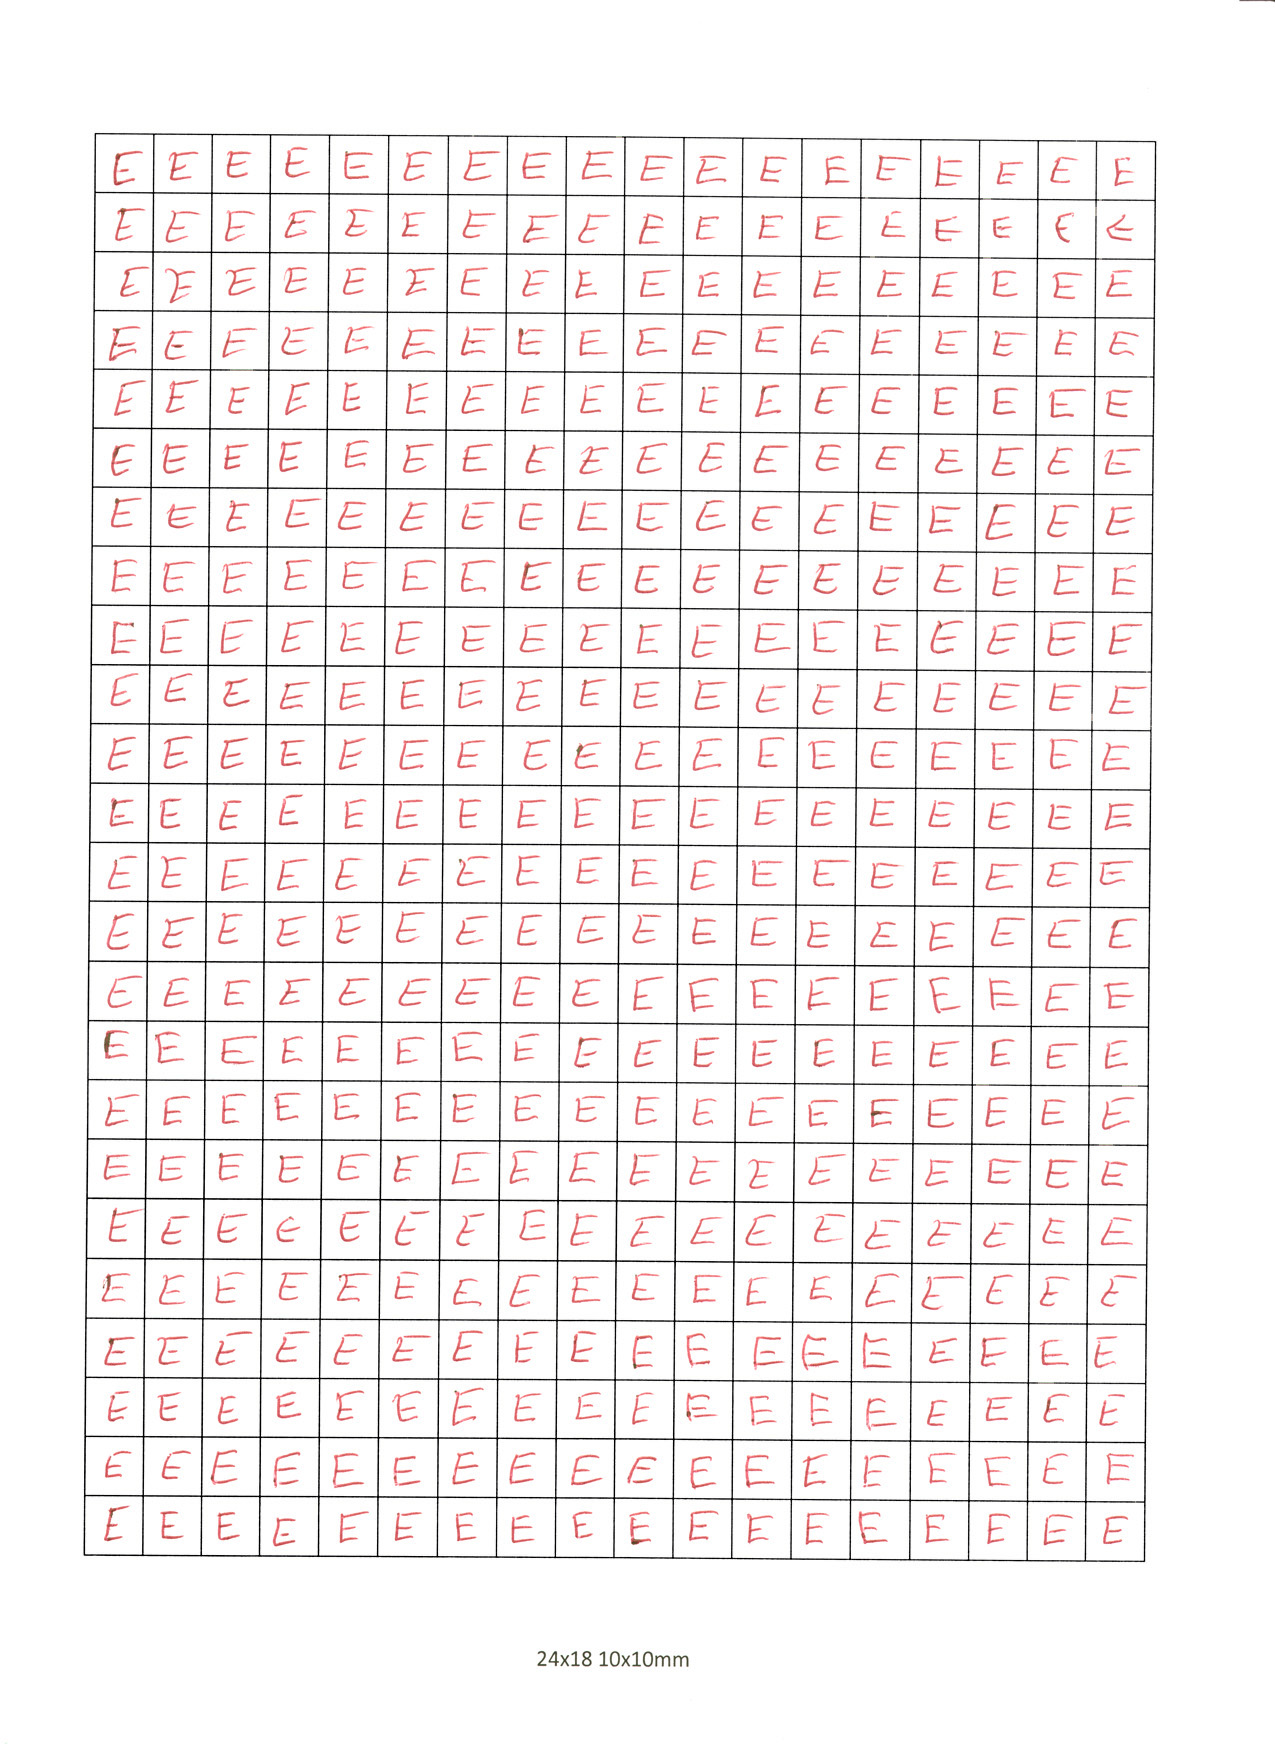 E E E E E E E E E E E E E E E E E E
E E E E E E E E E E E E E E E E E E
E E E E E E E E E E E E E E E E E E
E E E E E E E E E E E E E E E E E E
E E E E E E E E E E E E E E E E E E
E E E E E E E E E E E E E E E E E E
E E E E E E E E E E E E E E E E E E
E E E E E E E E E E E E E E E E E E
E E E E E E E E E E E E E E E E E E
E E E E E E E E E E E E E E E E E E
E E E E E E E E E E E E E E E E E E
E E E E E E E E E E E E E E E E E E
E E E E E E E E E E E E E E E E E E
E E E E E E E E E E E E E E E E E E
E E E E E E E E E E E E E E E E E E
E E E E E E E E E E E E E E E E E E
E E E E E E E E E E E E E E E E E E
E E E E E E E E E E E E E E E E E E
E E E E E E E E E E E E E E E E E E
E E E E E E E E E E E E E E E E E E
E E E E E E E E E E E E E E E E E E
E E E E E E E E E E E E E E E E E E
E E E E E E E E E E E E E E E E E E
E E E E E E E E E E E E E E E E E E
24x18 10x10mm